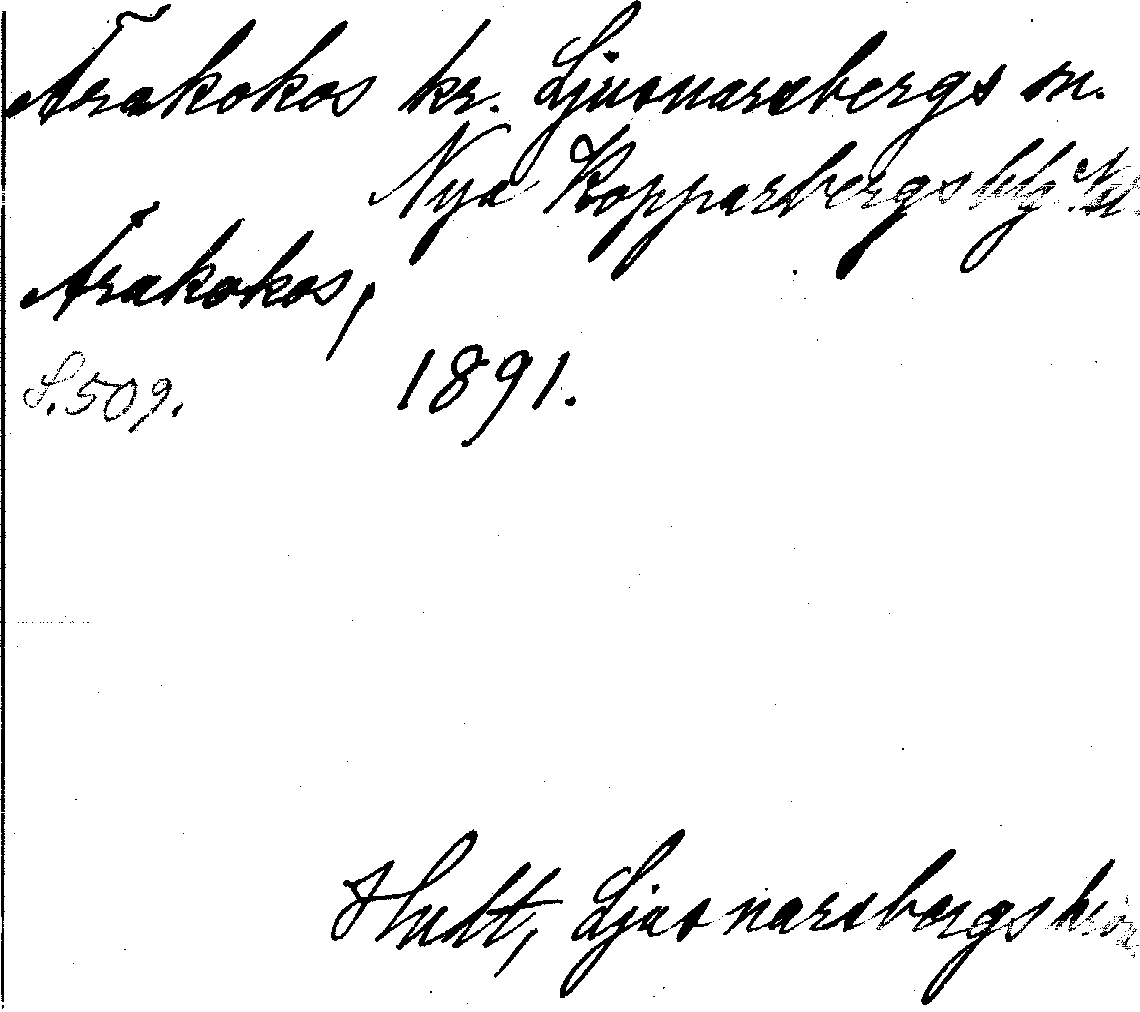 Årakokos kr. Ljusnarsbergs sn.
Nya Kopparbergs blg
Årakokos,
S. 509. 1891.
Hult, Ljusnarsbergskrön